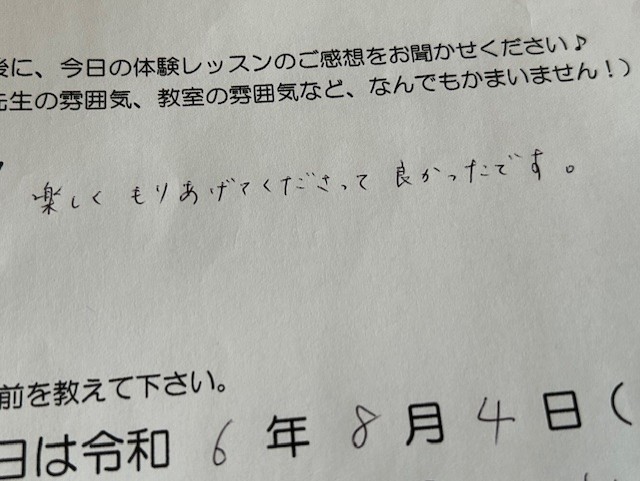 後に、今日の体験レッスンのご感想をお聞かせください♪
先生の雰囲気、教室の雰囲気など、なんでもかまいません！）
楽しくもりあげてくださって良かったです。
前を教えて下さい。
日は令和 6 年 8 月 4 日（